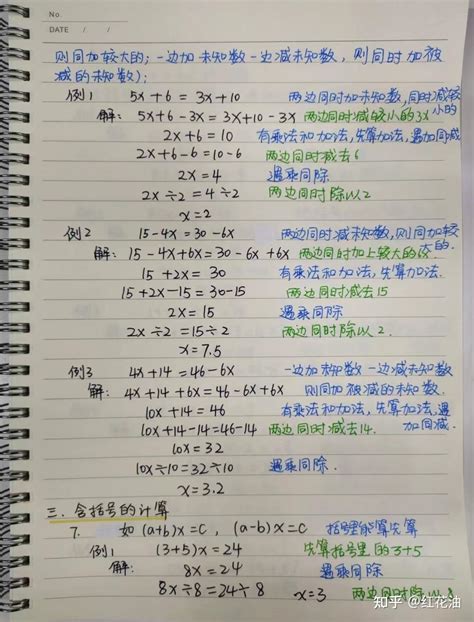 No.
DATE / /
则同加较大的；一边加未知数一边减未知数，则同时加被
减的未知数）；
例1 5x+6=3x+10 两边同时加未知数，同时减较
小的
解：5x+6-3x=3x+10-3x 两边同时减较小的3x
2x+6=10 有乘法和加法，先算加法，遇加同减
2x+6-6=10-6 两边同时减去6
2x=4 遇乘同除
2x÷2=4÷2 两边同时除以2
x=2
例2 15-4x=30-6x 两边同时减未知数，则同加较
大的.
解：15-4x+6x=30-6x+6x 两边同时加上较大的6x
15+2x=30 有乘法和加法，先算加法.
15+2x-15=30-15 两边同时减去15
2x=15 遇乘同除
2x÷2=15÷2 两边同时除以2.
x=7.5
例3 4x+14=46-6x 一边加未知数一边减未知数
解：4x+14+6x=46-6x+6x 则同加被减的未知数.
10x+14=46 有乘法和加法，先算加法，遇
加同减.
10x+14-14=46-14 两边同时减去14.
10x=32
10x÷10=32÷10 遇乘同除.
x=3.2
三. 含括号的计算
7. 如(a+b)x=c，(a-b)x=c 括号里能算先算
例1 (3+5)x=24 先算括号里的3+5
解：8x=24 遇乘同除
8x÷8=24÷8 x=3 两边同时除以8
知乎 @红花油